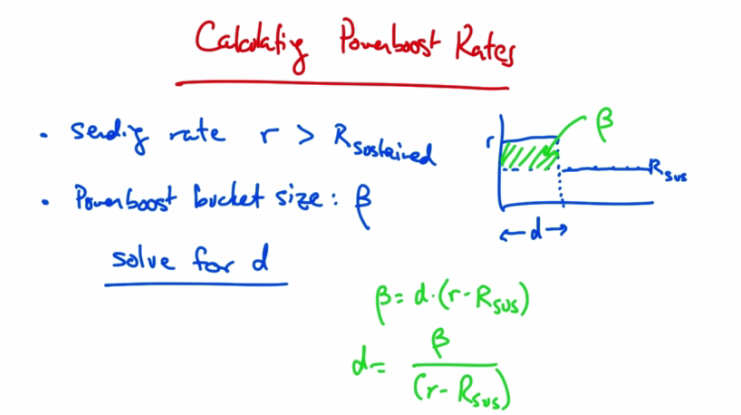 Calculating Powerboost Rates
• Sending rate r > R_sustained
• Powerboost bucket size: β
solve for d
β
r
R_sus
← d →
β = d·(r - R_sus)
d = β / (r - R_sus)